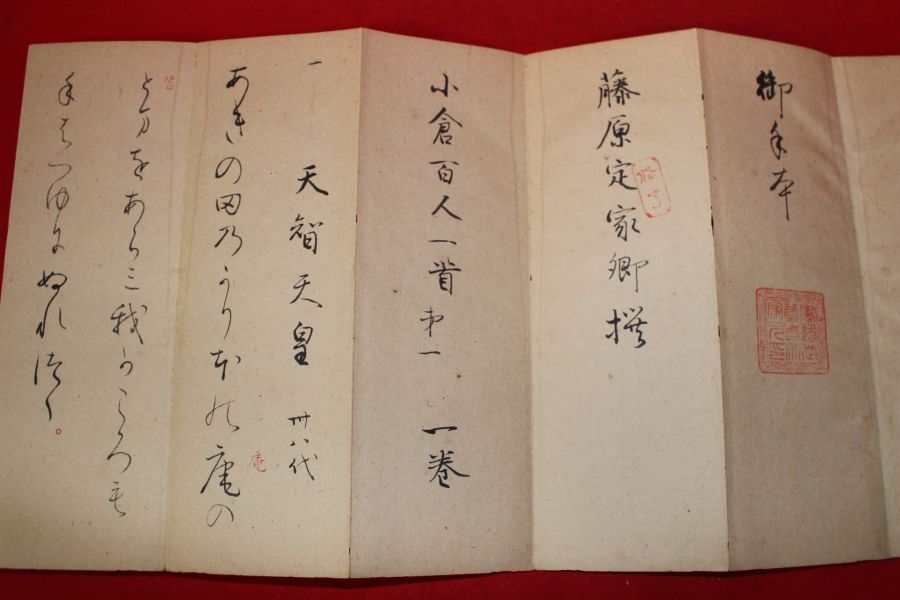 御手本
藤原定家卿撰
小倉百人一首 第一 一巻
一
天智天皇 卅八代
あきの田乃かりほの庵の
庵
苫
とまをあら三我かころも
手はつゆにぬれつゝ